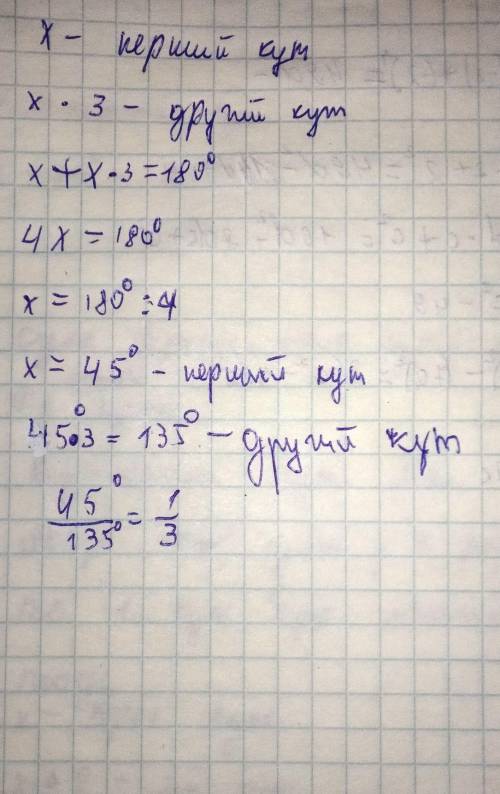 x – перший кут
x · 3 – другий кут
x + x · 3 = 180°
4x = 180°
x = 180° : 4
x = 45° – перший кут
45° · 3 = 135° – другий кут
45° / 135° = 1 / 3